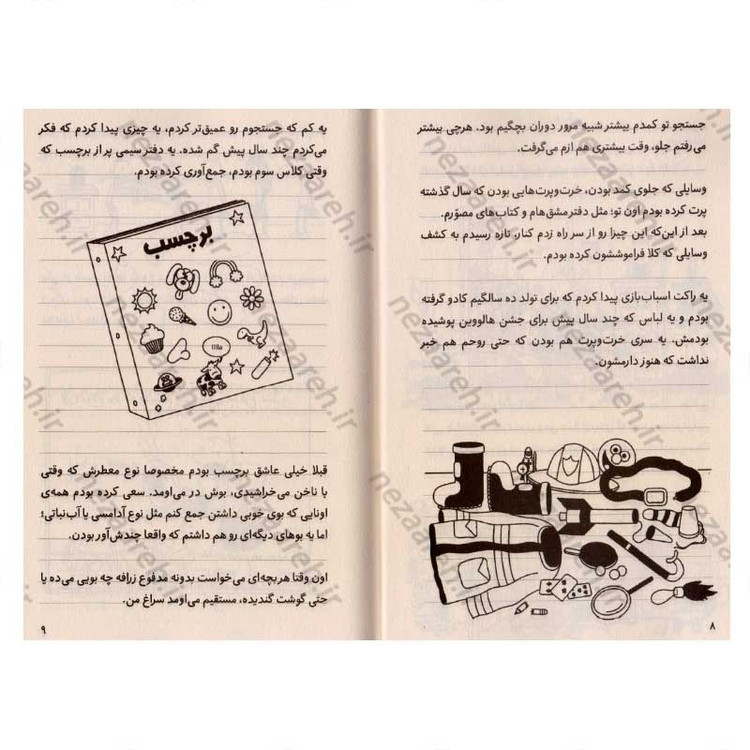 جستجو تو کمدم بیشتر شبیه مرور دوران بچگیم بود. هرچی بیشتر
می‌رفتم جلو، وقت بیشتری هم ازم می‌گرفت.
وسایلی که جلوی کمد بودن، خرت‌وپرت‌هایی بودن که سال گذشته
پرت کرده بودم اون تو؛ مثل دفتر مشق‌هام و کتاب‌های مصوّرم.
بعد از این‌که این چیزا رو از سر راه زدم کنار، تازه رسیدم به کشف
وسایلی که کلا فراموششون کرده بودم.
یه راکت اسباب‌بازی پیدا کردم که برای تولد ده سالگیم کادو گرفته
بودم و یه لباس که چند سال پیش برای جشن هالووین پوشیده
بودمش. یه سری خرت‌وپرت هم بودن که حتی روحم هم خبر
نداشت که هنوز دارمشون.
۸
یه کم که جستجوم رو عمیق‌تر کردم، یه چیزی پیدا کردم که فکر
می‌کردم چند سال پیش گم شده. یه دفتر سیمی پر از برچسب که
وقتی کلاس سوم بودم، جمع‌آوری کرده بودم.
برچسب
قبلا خیلی عاشق برچسب بودم مخصوصا نوع معطرش که وقتی
با ناخن می‌خراشیدی، بوش در می‌اومد. سعی کرده بودم همه‌ی
اونایی که بوی خوبی داشتن جمع کنم مثل نوع آدامسی یا آب‌نباتی؛
اما یه بوهای دیگه‌ای رو هم داشتم که واقعا چندش‌آور بودن.
اون وقتا هر بچه‌ای می‌خواست بدونه مدفوع زرافه چه بویی می‌ده یا
حتی گوشت گندیده، مستقیم می‌اومد سراغ من.
۹
nezaareh.ir